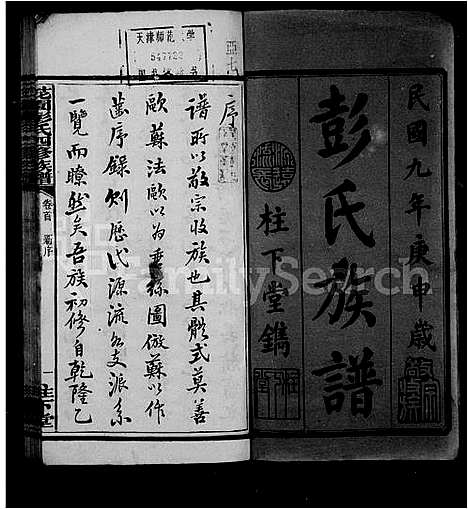 民國九年庚申歲
彭氏族譜
柱下堂鐫
序
譜所以敬宗收族也其體式莫善
歐蘇法歐以為垂絲圖倣蘇以作
齒序錄則歷代源流與支派系
一覽而瞭然矣吾族初修自乾隆乙
卷首
序
一
柱下堂
天津師範
547723
FamilySearch